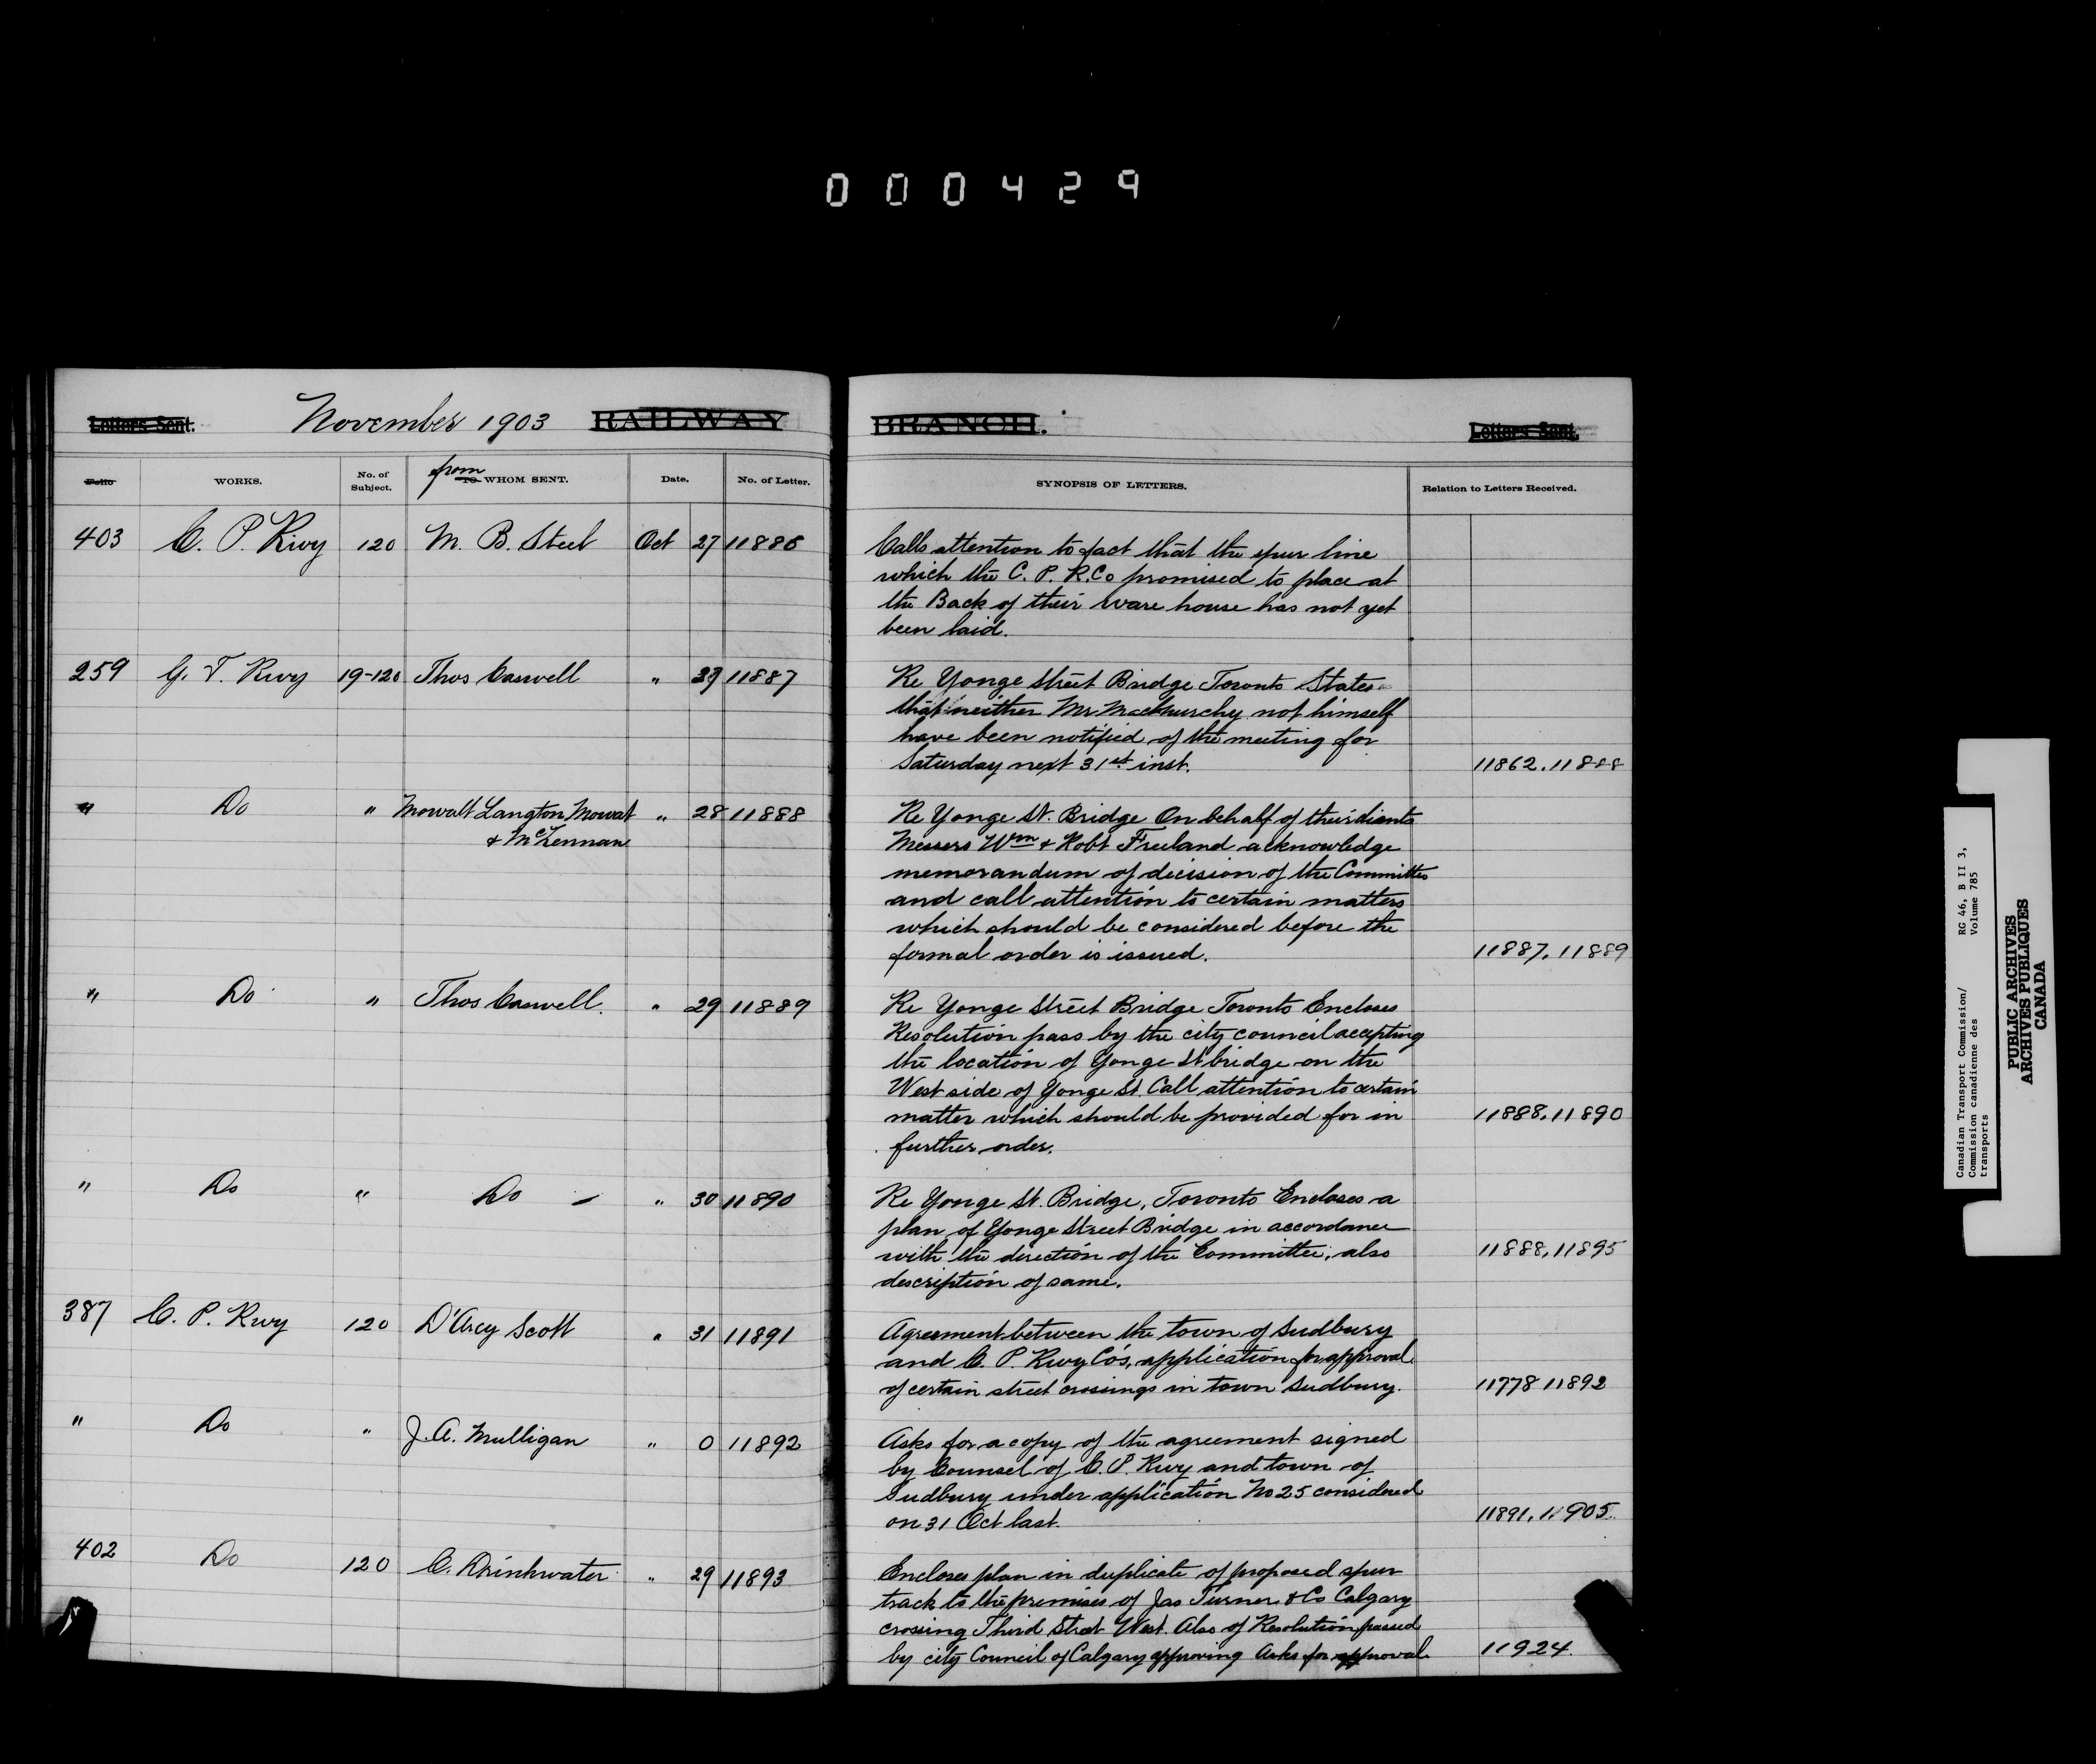 000429
Letters Sent. November 1903 RAILWAY BRANCH. Letters Sent.
Folio WORKS. No. of Subject. from TO WHOM SENT. Date. No. of Letter. SYNOPSIS OF LETTERS. Relation to Letters Received.
403 C. P. Rwy 120 M. B. Steel Oct 27 11886 Calls attention to fact that the spur line
which the C. P. R. Co promised to place at
the Back of their ware house has not yet
been laid.
259 G. T. Rwy 19-120 Thos Caswell " 29 11887 Re Yonge Street Bridge Toronto States
that neither Mr MacMurchy not himself
have been notified of the meeting for
Saturday next 31st inst. 11862. 11888
" Do " Mowatt Langton Mowat " 28 11888 Re Yonge St. Bridge On behalf of their clients
& McLennan Messers Wm & Robt Freeland acknowledge
memorandum of decision of the Committee
and call attention to certain matters
which should be considered before the
formal order is issued. 11887. 11889
" Do " Thos Caswell. " 29 11889 Re Yonge Street Bridge Toronto Encloses
Resolution pass by the city council accepting
the location of Yonge St bridge on the
West side of Yonge St. Call attention to certain
matter which should be provided for in 11888. 11890
further order.
" Do " Do " 30 11890 Re Yonge St. Bridge, Toronto Encloses a
plan of Yonge Street Bridge in accordance
with the direction of the Committee, also 11888. 11895
description of same.
387 C. P. Rwy 120 D'Arcy Scott " 31 11891 Agreement between the town of Sudbury
and C. P. Rwy Co's, application for approval
of certain street crossings in town Sudbury. 11778 11892
" Do " J. A. Mulligan " 0 11892 Asks for a copy of the agreement signed
by Counsel of C. P. Rwy and town of
Sudbury under application No 25 considered
on 31 Oct last. 11891. 11905.
402 Do 120 C. Drinkwater " 29 11893 Encloses plan in duplicate of proposed spur
track to the premises of Jas Turner & Co Calgary
crossing Third Street West. Also of Resolution passed
by city Council of Calgary approving Asks for approval. 11924.
Canadian Transport Commission/ RG 46, B II 3,
Commission canadienne des Volume 785
transports
PUBLIC ARCHIVES
ARCHIVES PUBLIQUES
CANADA